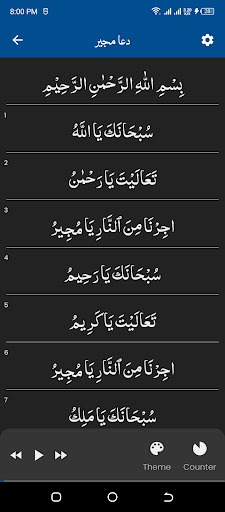 8:00 PM
دعا مجیر
بِسْمِ اللهِ الرَّحْمٰنِ الرَّحِيْمِ
1
سُبْحَانَكَ يَا اَللّٰهُ
2
تَعَالَيْتَ يَا رَحْمٰنُ
3
اَجِرْنَا مِنَ النَّارِ يَا مُجِيْرُ
4
سُبْحَانَكَ يَا رَحِيمُ
5
تَعَالَيْتَ يَا كَرِيمُ
6
اَجِرْنَا مِنَ النَّارِ يَا مُجِيْرُ
7
سُبْحَانَكَ يَا مَلِكُ
Theme
Counter